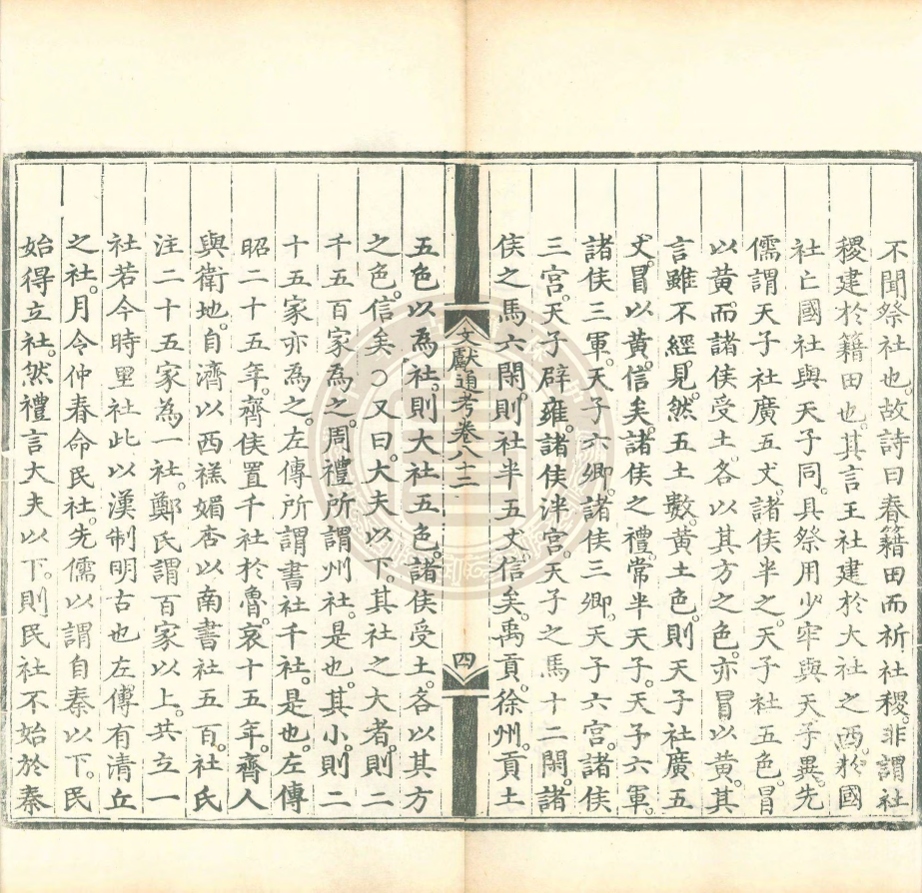 不聞祭社也。故詩曰春籍田而祈社稷。非謂社
稷建於籍田也。其言王社建於大社之西。於國
社亡國社與天子同。具祭用少牢與天子異。先
儒謂天子社廣五丈。諸侯半之。天子社五色。冒
以黄。而諸侯受土。各以其方之色。亦冒以黄。其
言雖不經見。然五土數。黄土色。則天子社廣五
丈。冒以黄。信矣。諸侯之禮。常半天子。天子六軍。
諸侯三軍。天子六卿。諸侯三卿。天子六宮。諸侯
三宮。天子辟雍。諸侯泮宮。天子之馬十二閑。諸
侯之馬六閑。則社半五丈。信矣。禹貢。徐州。貢土
文獻通考卷八十二
四
五色以為社。則大社五色。諸侯受土。各以其方
之色。信矣○又曰。大夫以下。其社之大者。則二
千五百家為之。周禮所謂州社。是也。其小。則二
十五家亦為之。左傳所謂書社千社。是也。左傳
昭二十五年。齊侯置千社於魯。哀十五年。齊人
與衛地。自濟以西禚媚杏以南書社五百。社氏
注二十五家為一社。鄭氏謂百家以上。共立一
社若今時里社此以漢制明古也左傳有清丘
之社。月令仲春命民社。先儒以謂自秦以下。民
始得立社。然禮言大夫以下。則民社不始於秦